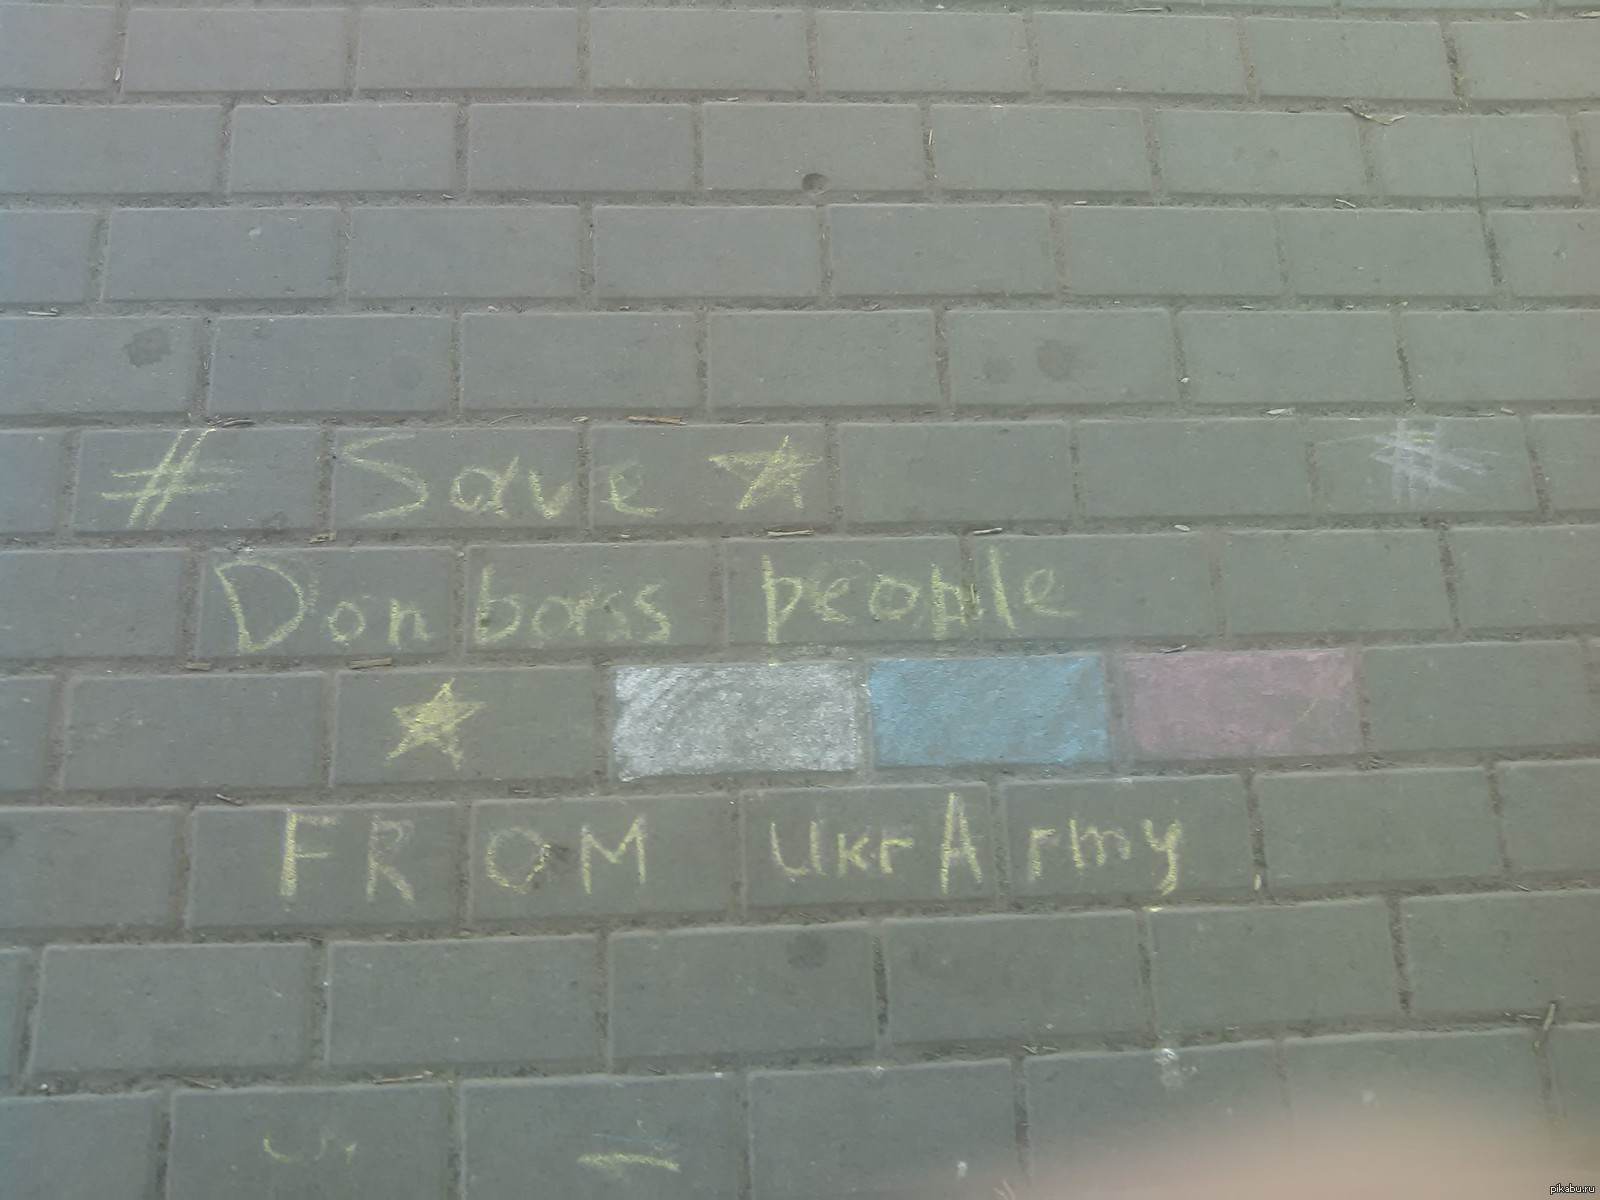 # Save #
Donbass people
FROM UkrArmy
pikabu.ru